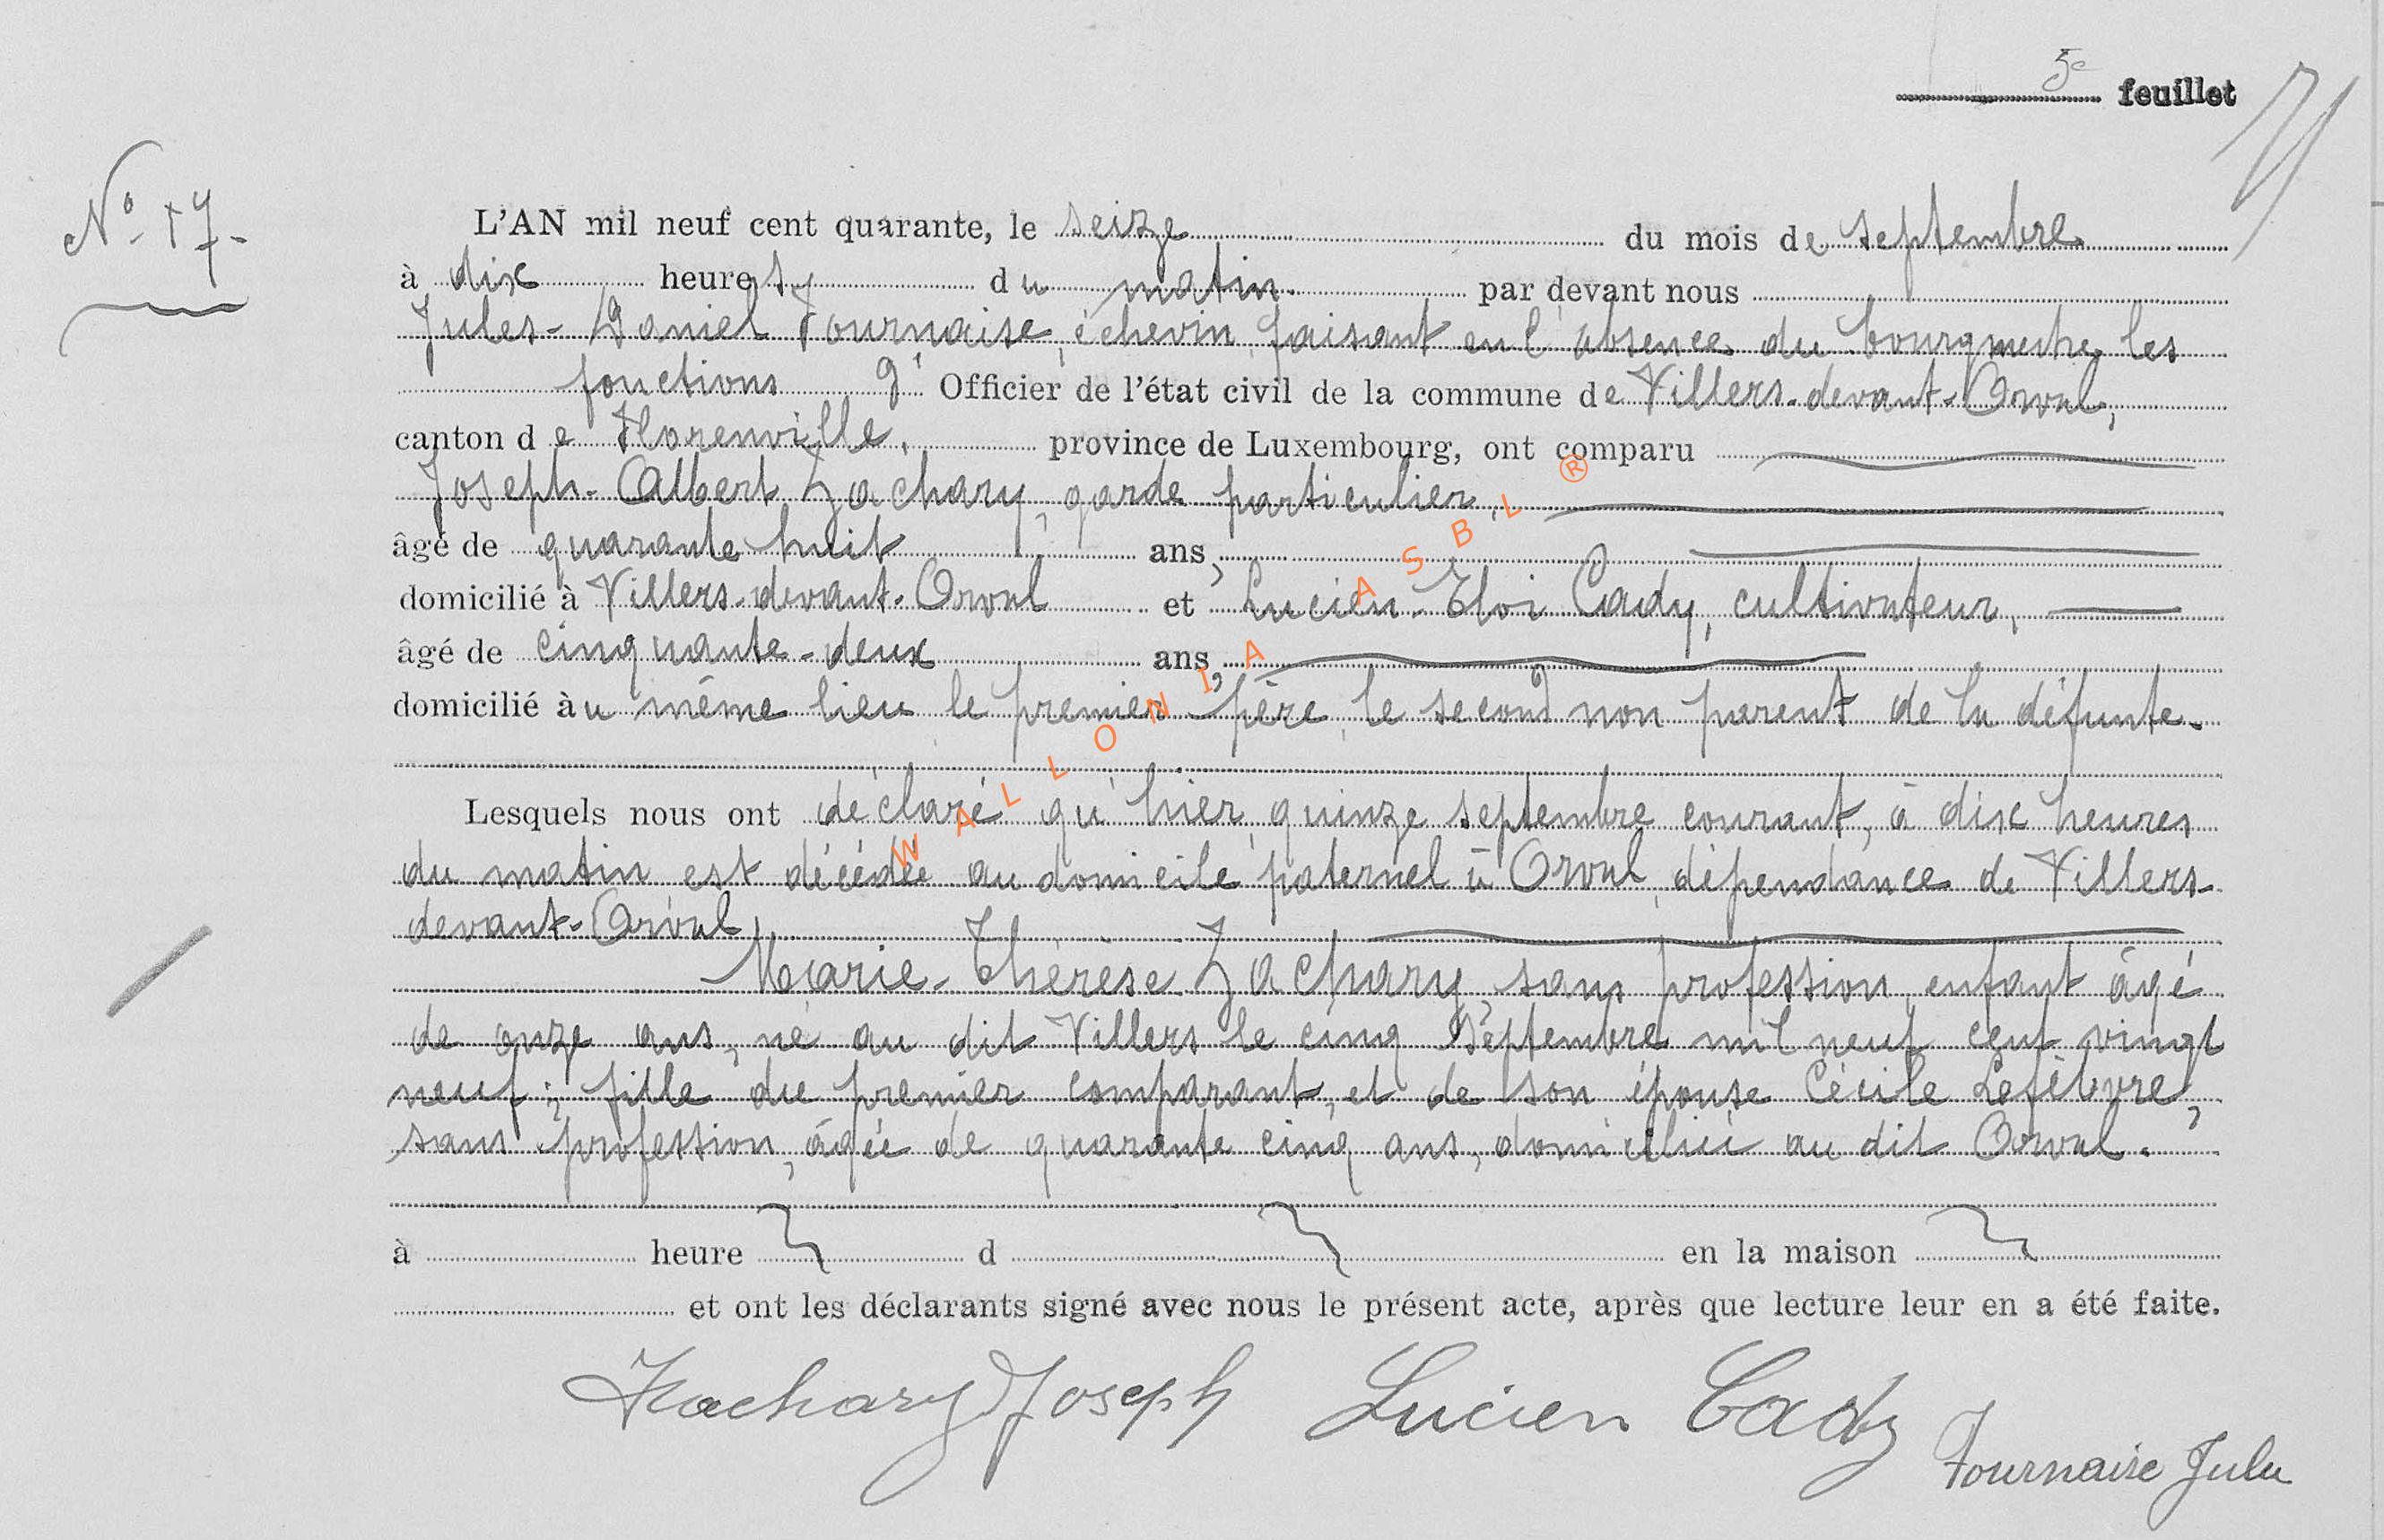 5e feuillet
N° 17-
L'AN mil neuf cent quarante, le seize du mois de septembre
à dix heures du matin. par devant nous
Jules-Daniel Fournaise, échevin, faisant en l'absence du bourgmestre les
fonctions d' Officier de l'état civil de la commune de Villers-devant-Orval,
canton de Florenville, province de Luxembourg, ont comparu
Joseph-Albert Zachary, garde particulier,
âgé de quarante huit ans,
domicilié à Villers-devant-Orval et Lucien-Eloi Cady, cultivateur,
âgé de cinquante-deux ans,
domicilié au même lieu le premier père, le second non parent de la défunte.
Lesquels nous ont déclaré qu'hier, quinze septembre courant, à dix heures
du matin est décédée au domicile paternel à Orval, dépendance de Villers-
devant-Orval
Marie-Thérèse Zachary, sans profession, enfant âgé
de onze ans, né au dit Villers le cinq septembre mil neuf cent vingt
neuf; fille du premier comparant, et de son épouse Cécile Lefèbvre,
sans profession, âgée de quarante cinq ans, domiciliée au dit Orval.
à heure d en la maison
et ont les déclarants signé avec nous le présent acte, après que lecture leur en a été faite.
Zachary Joseph Lucien Cady
Fournaise Jules
WALLONIA ASBL ®